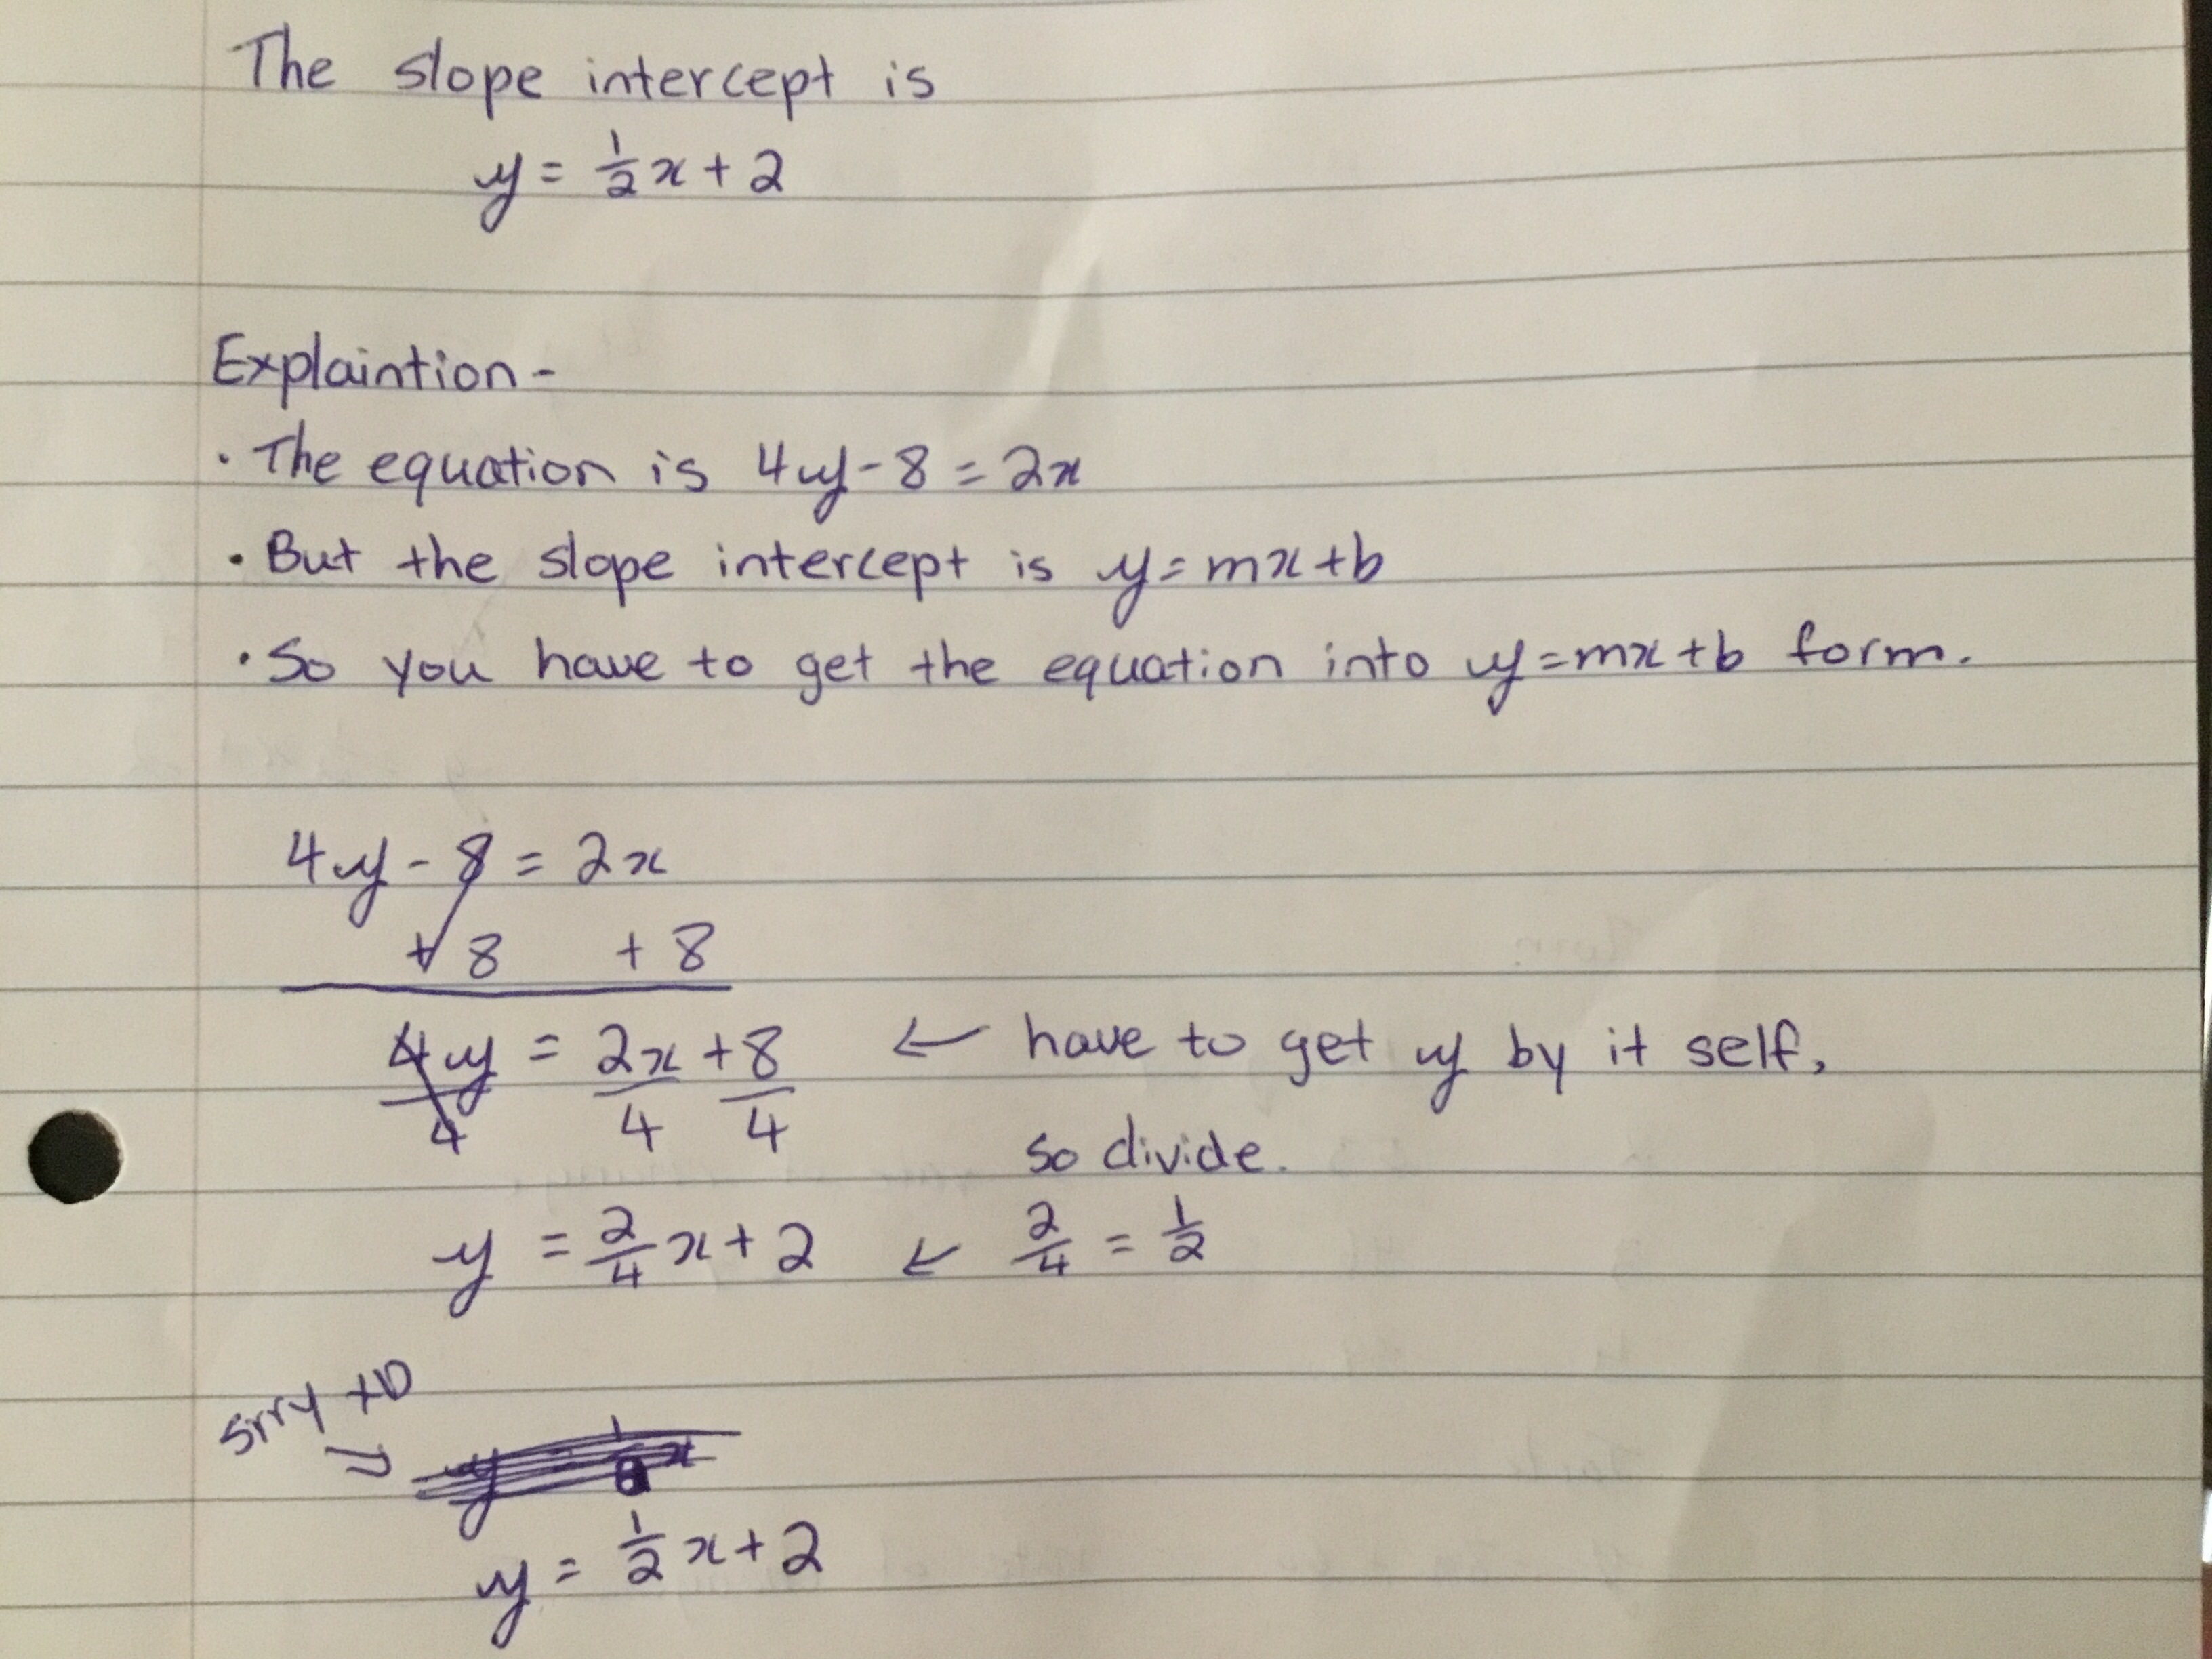 The slope intercept is
y = 1/2 x + 2
Explaintion -
· The equation is 4y - 8 = 2x
· But the slope intercept is y = mx + b
· So you have to get the equation into y = mx + b form.
4y - 8 = 2x
+ 8 + 8
4y/4 = 2x/4 + 8/4 ← have to get y by it self,
so divide.
y = 2/4 x + 2 ← 2/4 = 1/2
srry
y = 1/2 x + 2